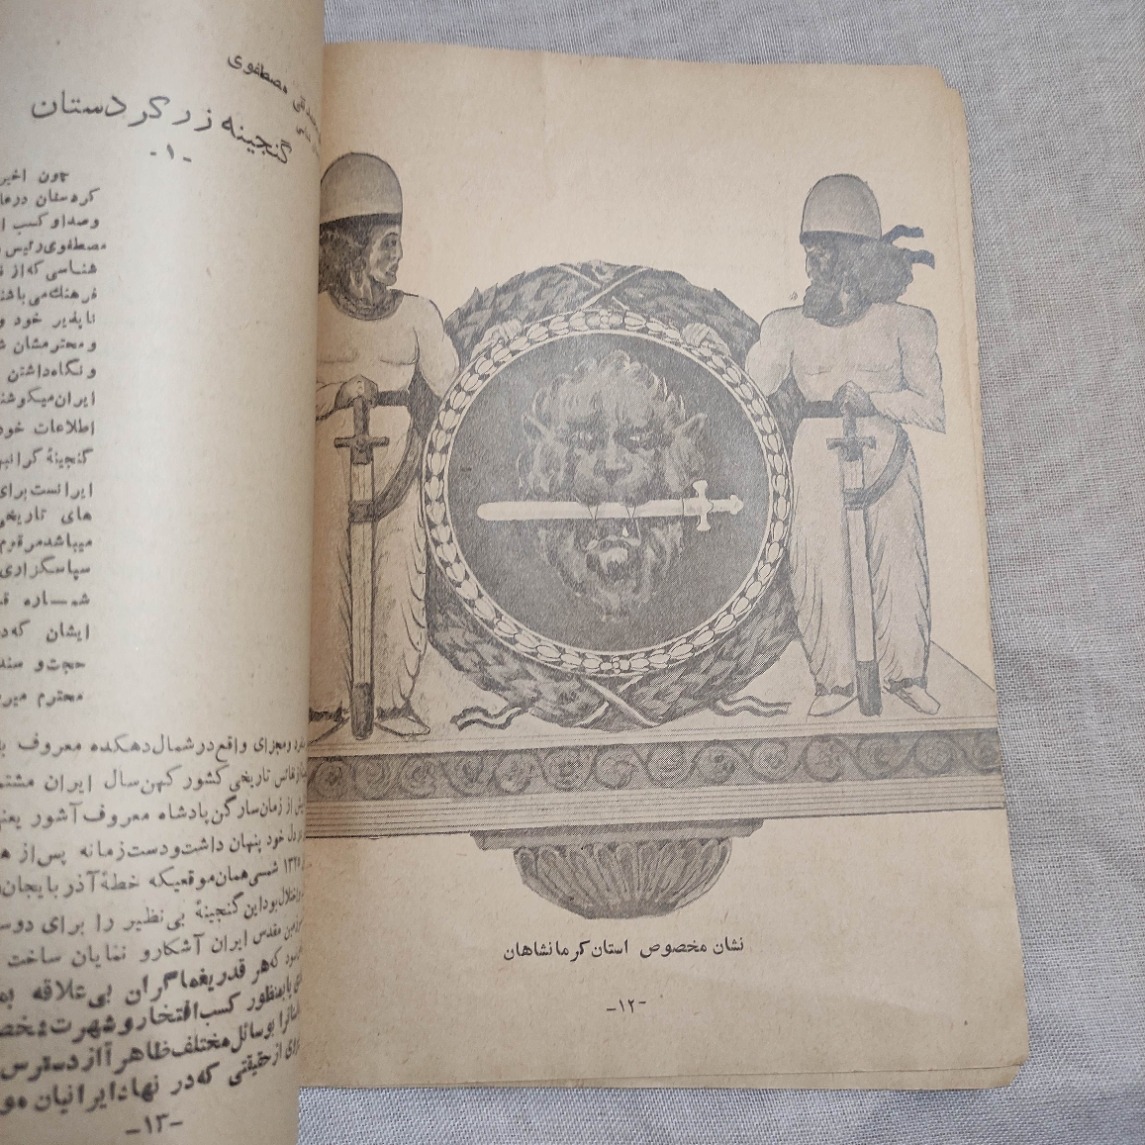 نشان مخصوص استان کرمانشاهان
-۱۲-
مصطفوی
گنجینه زر کردستان
-۱-
چون اخیر
کردستان در
و صدا و کسب
مصطفوی رئیس
شناسی که از
فرهنك می باشند
ناپذیر خود و
و محترمشان
و نگاه داشتن
ایران میکوشند
اطلاعات خود
گنجینهٔ گرانبها
ایرانست برای
های تاریخی
میباشد مرقوم
سپاسگزاری
شماره
ایشان که در
حجت و سند
محترم
و مجزای واقع در شمال دهکده معروف
نفائس تاریخی کشور کهن سال ایران
از زمان سارگن پادشاه معروف آشور یعنی
دل خود پنهان داشت و دست زمانه پس از
شمسی همان موقعیکه خطهٔ آذربایجان
بود این گنجینهٔ بی نظیر را برای
مقدس ایران آشکار و نمایان ساخت
که هر قدر یغماگران بی علاقه
بمنظور کسب افتخار و شهرت
را بوسائل مختلف ظاهراً از دسترس
از حقیقتی که در نهاد ایرانیان
-۱۳-